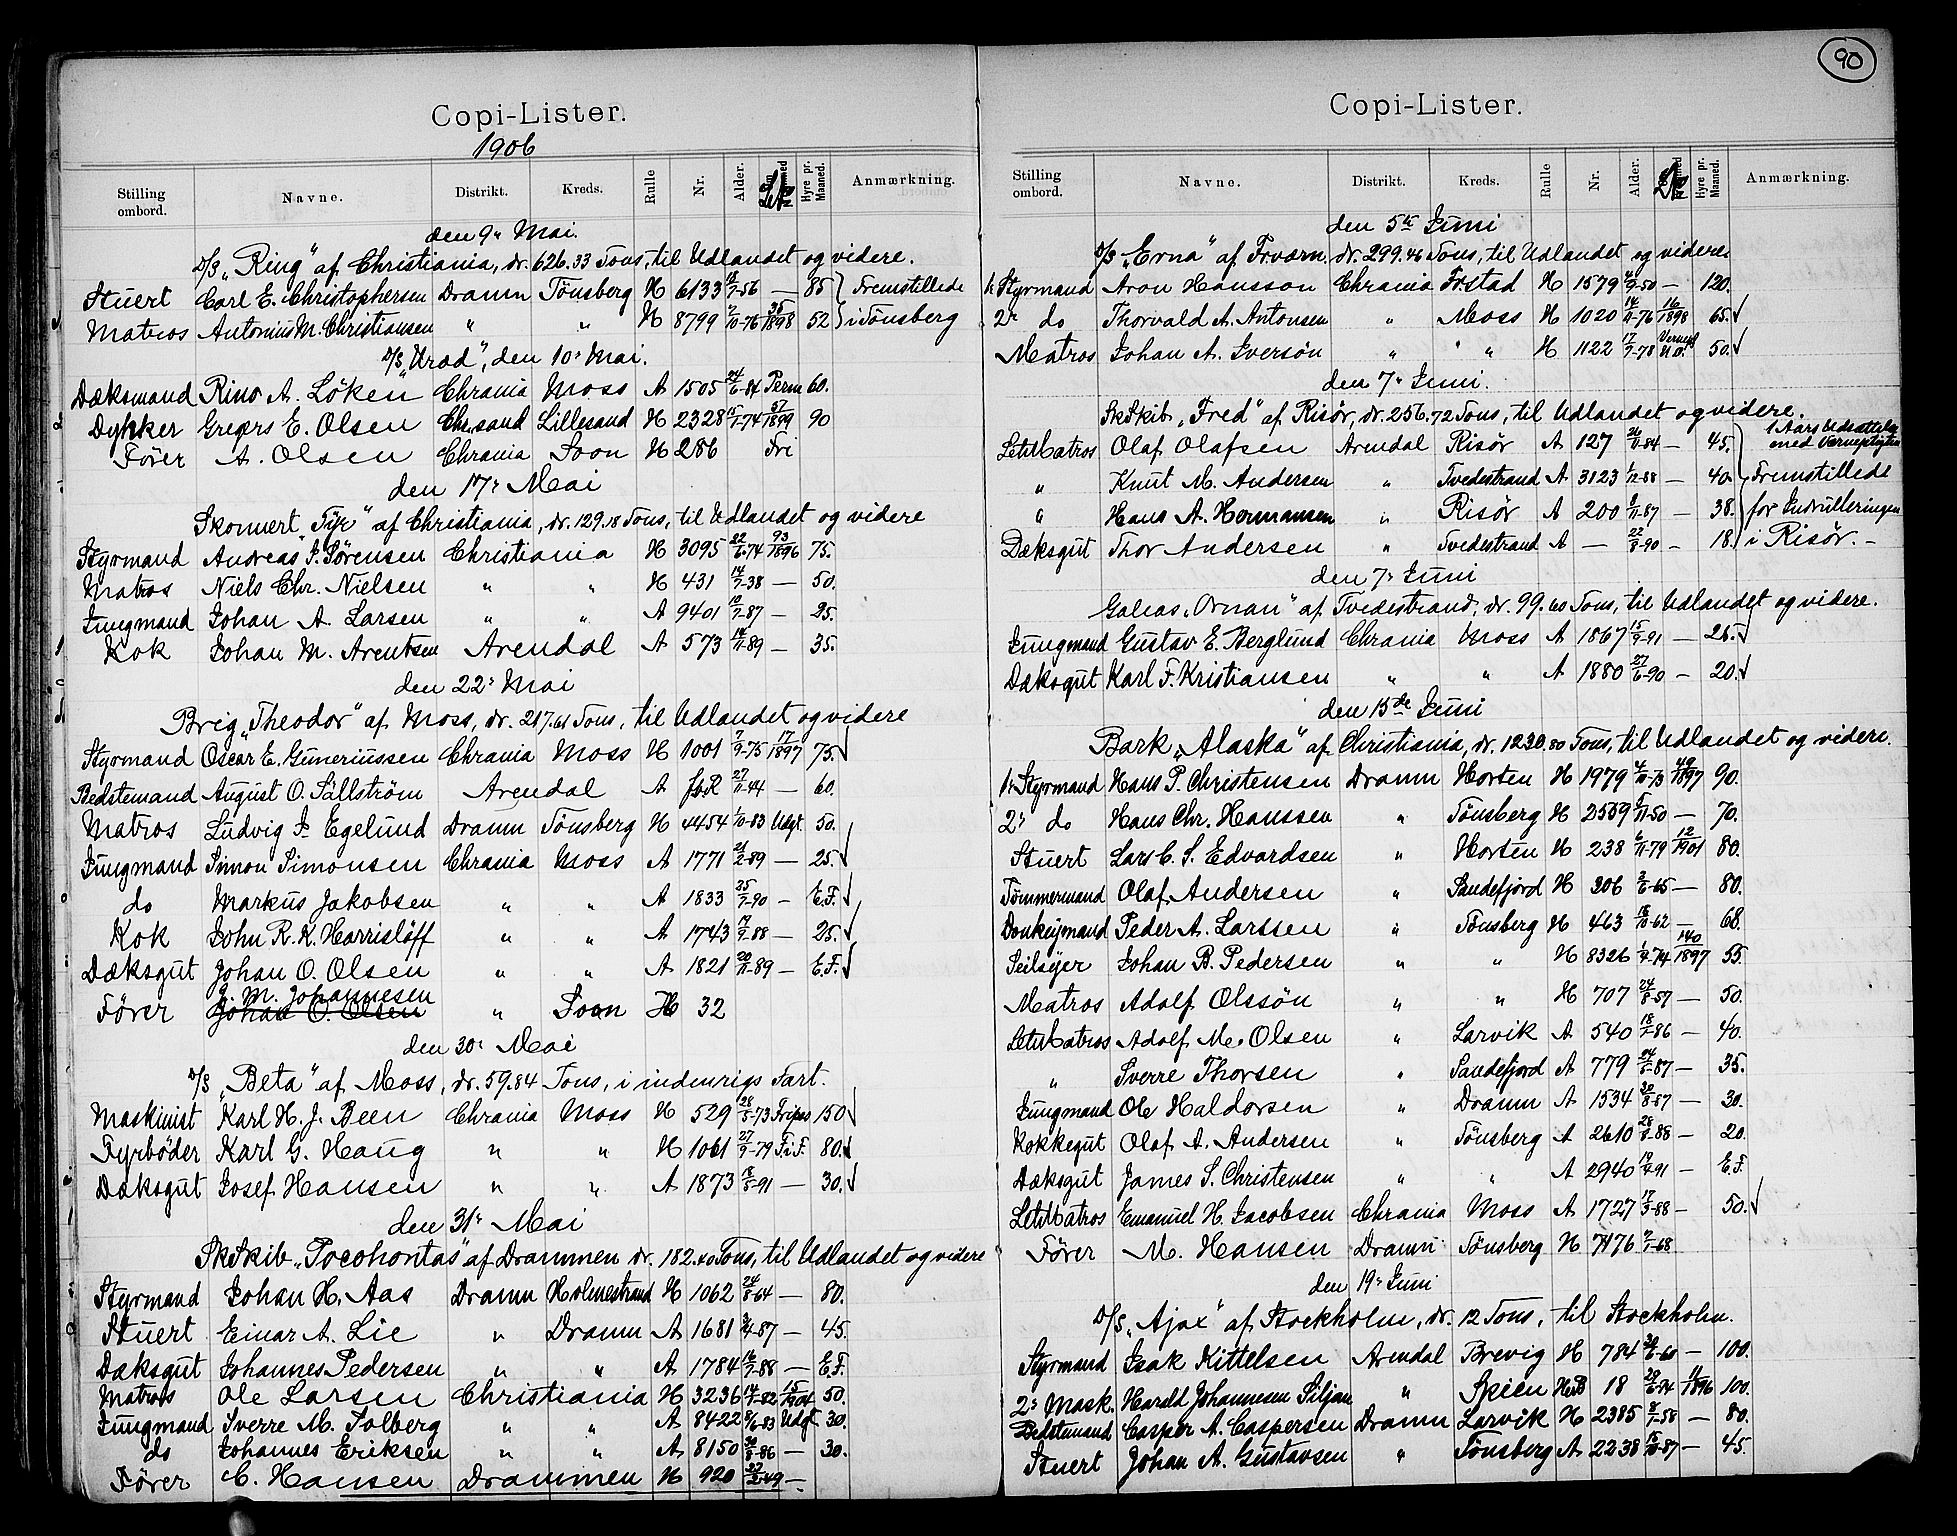 Copi-Lister.
1906
Stilling ombord. Navne. Distrikt. Kreds. Rulle Nr. Alder. Hyre pr. Maaned. Anmærkning.
den 9' Mai.
D/S „Ring" af Christiania, dr. 626.33 Tons, til Udlandet og videre.
Stuert Carl E. Christophersen Dramn Tönsberg H 6133 -56 — 85 Fremstillede
Matros Antonius M. Christiansen " " H 8799 /10-76 35/1898 52 i Tönsberg
D/S „Urad", den 10' Mai.
Dæksmand Rino A. Löken Chrania Moss A 1505 24/6-84 Perm 60.
Dykker Gregers E. Olsen Chr.sand Lillesand H 2328 15/7-74 57/1899 90
Förer A. Olsen Chrania Soon H 286 Fri
den 17' Mai
Skonnert „Tyr" af Christiania, dr. 129.18 Tons, til Udlandet og videre
Styrmand Andreas J. Sörensen Christiania H 3095 22/6-74 93/1896 75.
Matros Niels Chr. Nielsen " " H 431 14/7-38 — 50.
Jungmand Johan A. Larsen " " A 9401 10/7-87 — 25.
Kok Johan M. Arentsen Arendal A 573 14/11-89 — 35.
den 22' Mai
Brig „Theodor" af Moss, dr. 217.61 Tons, til Udlandet og videre
Styrmand Oscar E. Gunerius­sen Chrania Moss H 1001 7/9-75 17/1897 75.
Bedstemand August O. Sällström Arendal A fbR 27/11-44 — 60.
Matros Ludvig J. Egelund Dramn Tönsberg H 4454 1/10-83 Udgt. 50.
Jungmand Simon Simonsen Chrania Moss A 1771 21/2-89 — 25.
do Markus Jakobsen " " A 1833 25/7-90 — E.F.
Kok John R. K. Harrislöff " " A 1743 14/9-88 — 25.
Dæksgut Johan O. Olsen " " A 1821 20/11-89 — E.F.
J. M. Johannesen
Förer Johan O. Olsen " Soon H 32
den 30' Mai
D/S „Beta" af Moss, dr. 59.84 Tons, i indenrigs Fart.
Maskinist Karl H. J. Been Chrania Moss H 529 28/5-73 Fripas 150
Fyrböder Karl G. Haug " " H 1061 27/9-79 Fri F. 80.
Dæksgut Josef Hansen " " A 1873 18/5-91 — 30.
den 31' Mai
SkSkib „Pocohontas" af Drammen dr. 182.40 Tons, til Udlandet og videre
Styrmand Johan H. Aas Dramn Holmestrand H 1062 24/8-64 — 80.
Stuert Einar A. Lie " Dramn A 1681 /4-87 — 45.
Dæksgut Johannes Pedersen " " A 1784 16/7-88 — E.F.
Matros Ole Larsen Christiania H 3236 14/7-82 15/1904 50.
Jungmand Sverre M. Solberg " " A 8422 /6-83 Udgt. 30.
do Johannes Eriksen " " A 8150 30/9-86 — 30.
Förer C. Hansen Drammen H 920 -49 —
90
Copi-Lister.
Stilling ombord. Navne. Distrikt. Kreds. Rulle Nr. Alder. Hyre pr. Maaned. Anmærkning.
den 5te Juni
D/S „Erna" af Frværn. dr. 299.46 Tons, til Udlandet og videre
1' Styrmand Aron Hansson Chrania Fr.stad H 1579 4/9-50 — 120.
2' do Thorvald A. Antonsen " Moss H 1020 14/11-76 16/1898 65.
Matros Johan A. Iversön " " " H 1122 17/7-78 Vernepl. U.D. 50.
den 7' Juni.
SkSkib. „Fred" af Risör, dr. 256.72 Tons, til Udlandet og videre.
LetMatros Olaf Olafsen Arendal Risör A 127 26/11-84 — 45. 1 Aars Udsættelse med Verneplygten
" Knut M. Andersen " Tvedestrand A 3123 1/12-88 — 40. Fremstillede
" Hans A. Hermansen " Risör A 200 8/11-87 — 38. for Indrulleringen
Dæksgut Thor Andersen " Tvedestrand A — 22/8-90 — 18. i Risör. —
den 7' Juni
Galeas „Ornan" af Tvedestrand, dr. 99.60 Tons, til Udlandet og videre.
Jungmand Gustav E. Berglund Chrania Moss A 1867 15/9-91 — 25.
Dæksgut Karl F. Kristiansen " " A 1880 27/6-90 — 20.
den 15de Juni
Bark „Alaska" af Christiania, dr. 1230.80 Tons, til Udlandet og videre.
1' Styrmand Hans P. Christensen Dramn Horten H 1979 4/10-73 49/1897 90.
2' do Hans Chr. Hanssen " Tönsberg H 2569 5/11-50 — 70.
Stuert Lars C. S. Edvardsen " Horten H 238 6/11-79 12/1901 80.
Tömmermand Olaf Andersen " Sandefjord H 306 2/6-65 — 80.
Donkeymand Peder A. Larssen " Tönsberg H 463 18/10-62 — 68.
Seilsyer Johan B. Pedersen " " H 8326 /4-74 140/1897 55.
Matros Adolf Olssön " " H 707 24/8-57 — 50.
LetMatros Adolf M. Olsen " Larvik A 540 18/1-86 — 40.
" Sverre Thorsen " Sandefjord A 779 24/6-87 — 35.
Jungmand Ole Haldorsen " Dramn A 1534 30/8-87 — 30.
Kokkegut Olaf A. Andersen " Tönsberg A 2610 28/8-88 — 20.
Dæksgut James S. Christensen " " A 2940 -91 — E.F.
LetMatros Emanuel H. Jacobsen Chrania Moss A 1727 17/3-88 — 50.
Förer M. Hansen Dramn Tönsberg H 7176 /1-68
den 19' Juni
D/S „Ajax" af Stockholm, dr. 12 Tons, til Stockholm.
Styrmand Isak Kittelsen Arendal Brevig H 784 30/6-60 — 100.
2' Mask. Harald Johannesen Siljan " Skien HndB 18 29/6-74 11/1896 100.
Bedstemand Casper A. Caspersen Dramn Larvik H 2385 8/1-58 — 80.
Stuert Johan A. Gustavsen " Tönsberg A 2238 15/10-87 — 45.